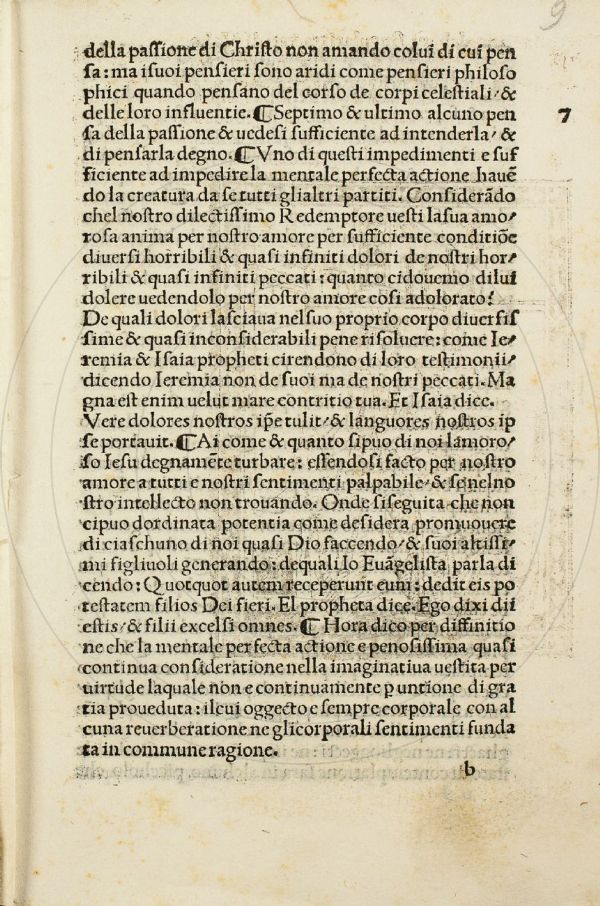 9
della passione di Christo non amando coluı̃ di cuı̃ pen
sa: ma i suoi pensieri sono aridi come pensieri philoso
phici quando pensano del corso de corpi celestiali/&
delle loro influentie. ¶ Septimo & ultimo alcuno pen 7
sa della passione & uedesi sufficiente ad intenderla/&
di pensarla degno. ¶ Vno di questi impedimenti e suf
ficiente ad impedire la mentale perfecta actione hauẽ
do la creatura da se tutti glialtri partiti. Considerãdo
chel nostro dilectissimo Redemptore uesti lasua amo/
rosa anima per nostro amore per sufficiente conditiõe
diuersi horribili & quasi infiniti dolori de nostri hor/
ribili & quasi infiniti peccati: quanto cidouemo dilui
dolere uedendolo per nostro amore cosi adolorato?
De quali dolori lasciaua nel suo proprio corpo diuersis
sime & quasi inconsiderabili pene risoluere: come Ie/
remia & Isaia propheti cirendono di loro testimonii/
dicendo Ieremia non de suoi ma de nostri peccati. Ma
gna est enim uelut mare contritio tua. Et Isaia dice.
Vere dolores nostros ip̃e tulit/& languores nostros ip
se portauit. ¶ Ai come & quanto sipuo di noi lamoro/
so Iesu degnamẽte turbare: essendosi facto per nostro
amore a tutti e nostri sentimenti palpabile/& se nelno
stro intellecto non trouando. Onde siseguita che non
cipuo dordinata potentia come desidera promuouere
di ciaschuno di noi quasi Dio faccendo/& suoi altissi/
mi figliuoli generando: dequali Io Euãgelista parla di
cendo: Quotquot autem receperunt eum: dedit eis po
testatem filios Dei fieri. El propheta dice. Ego dixi dii
estis/& filii excelsi omnes. ¶ Hora dico per diffinitio
ne che la mentale perfecta actione e penosissima quasi
continua consideratione nella imaginatiua uestita per
uirtude laquale non e continuamente p untione di gra
tia proueduta: ilcui oggecto e sempre corporale con al
cuna reuerberatione ne glicorporali sentimenti funda
ta in commune ragione.
b